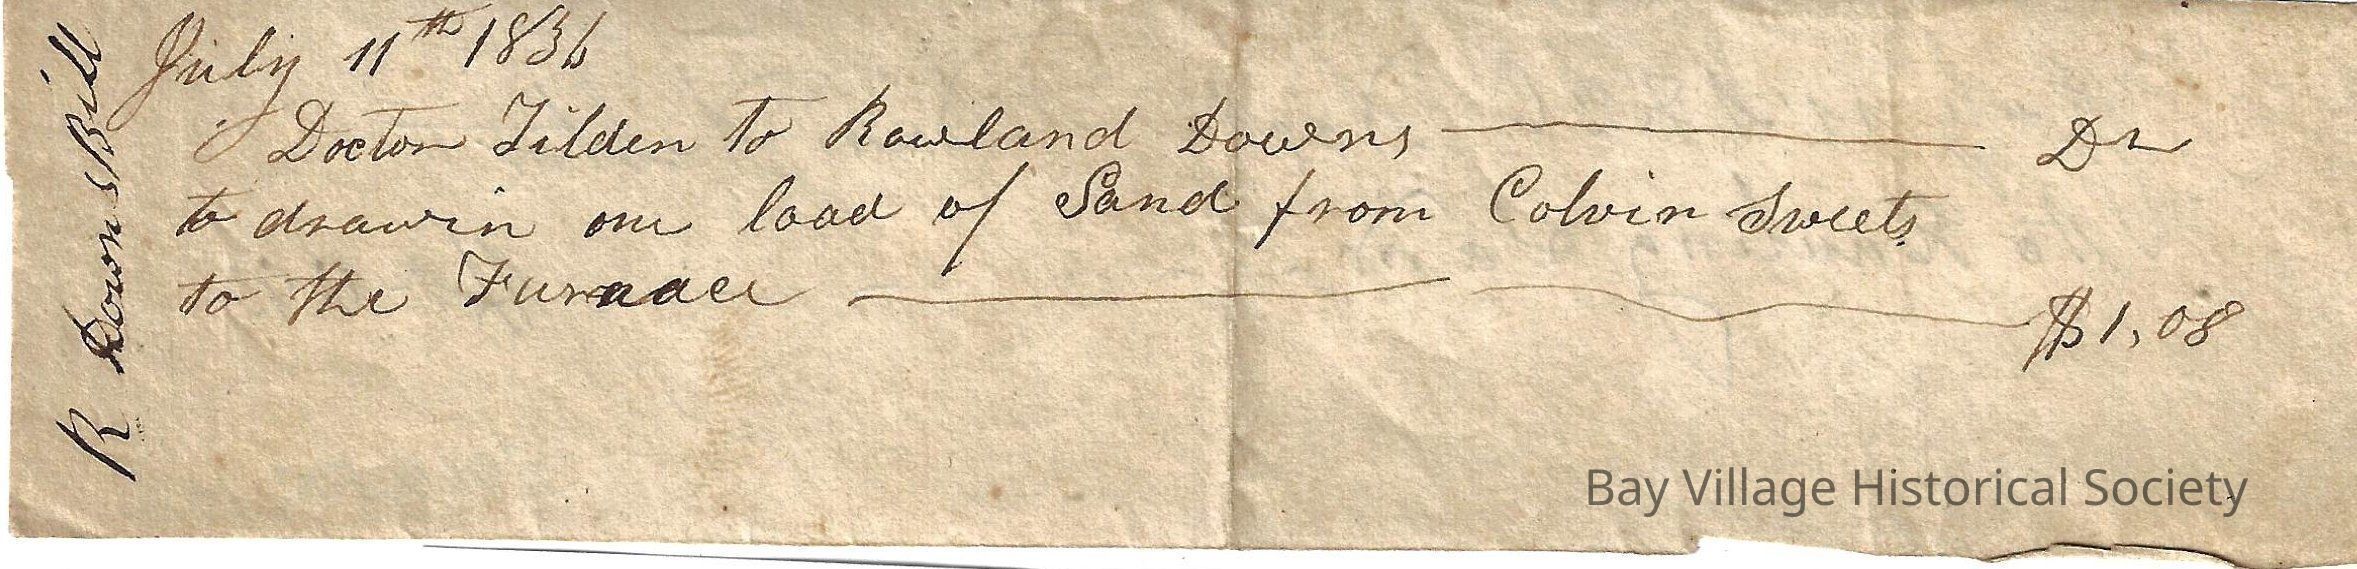 July 11th 1836
Doctor Tilden to Rowland Downs Dr
to drawin one load of Sand from Colvin Sweets
to the Furnace $1,08
R Downs Bill
Bay Village Historical Society